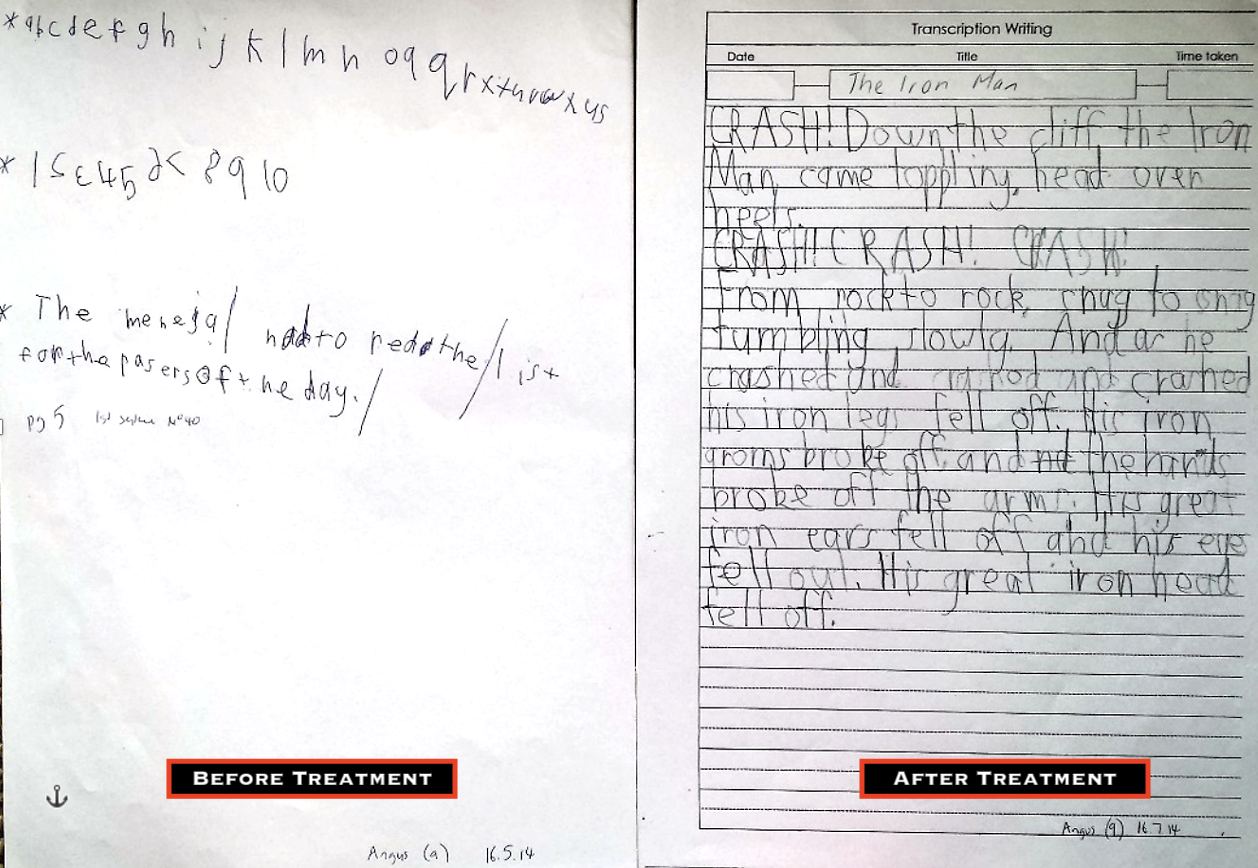 * abcdefgh ijklmn oqqrxtuvwxys
* 1 2 3 4 5 8 9 10
* The meneja/ had to red the/ list
for the pasers of the day./
pg 5 1st sentence Nº 40
BEFORE TREATMENT
Angus (a) 16.5.14
Transcription Writing
Date Title Time taken
The Iron Man
CRASH! Down the cliff the Iron
Man came toppling, head over
heels.
CRASH! CRASH! CRASH!
From rock to rock, snag to snag
tumbling slowly. And as he
crashed and crashed and crashed
his iron legs fell off. His iron
aroms broke off, and the hands
broke off the arms. His great
iron ears fell off and his eyes
fell out. His great iron head
fell off.
AFTER TREATMENT
Angus (9) 16.7.14